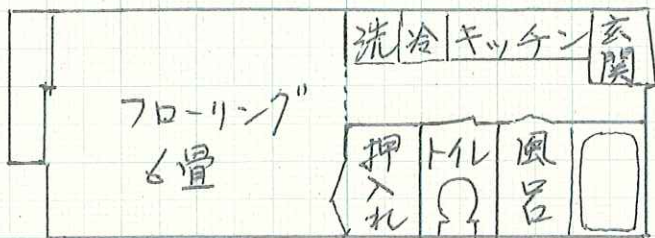 洗
冷
キッチン
玄関
フローリング
6畳
押入れ
トイレ
風呂